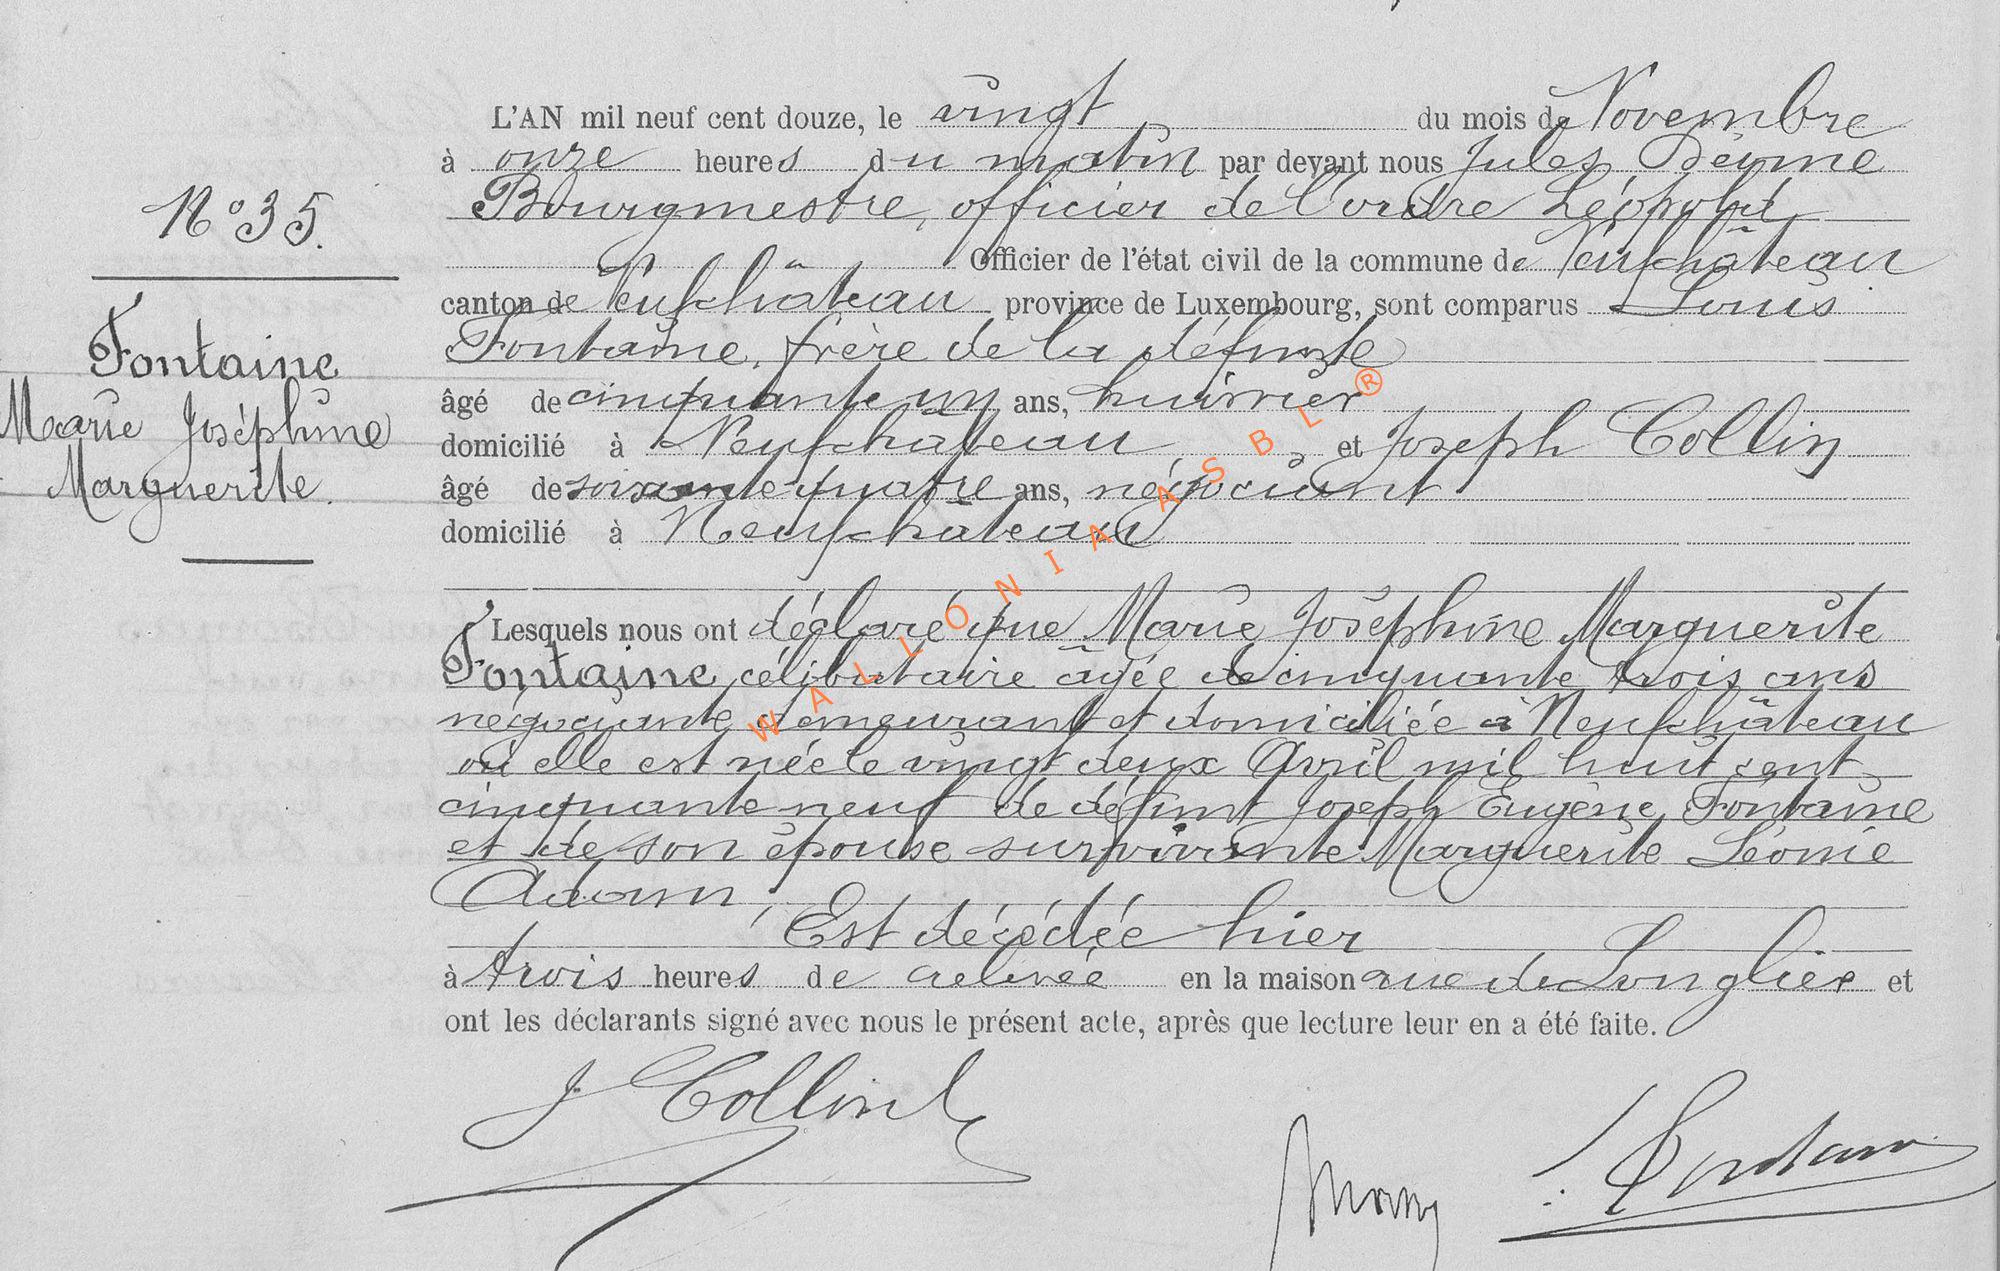 N° 35.
Fontaine
Marie Joséphine
Marguerite.
L'AN mil neuf cent douze, le vingt du mois de Novembre
à onze heures du matin par devant nous Jules
Bourgmestre, officier de l'ordre Léopold
Officier de l'état civil de la commune de Neufchâteau
canton de Neufchâteau province de Luxembourg, sont comparus Louis
Fontaine, frère de la défunte
âgé de cinquante un ans, huissier
domicilié à Neufchâteau, et Joseph Collin
âgé de soixante quatre ans, négociant
domicilié à Neufchâteau
Lesquels nous ont déclaré que Marie Joséphine Marguerite
Fontaine, célibataire âgée de cinquante trois ans
négociante demeurant et domiciliée à Neufchâteau
où elle est née le vingt deux Avril mil huit cent
cinquante neuf de défunt Joseph Eugène Fontaine
et de son épouse survivante Marguerite Léonie
Adam,
Est décédée hier
à trois heures de relevée en la maison rue de Longlier et
ont les déclarants signé avec nous le présent acte, après que lecture leur en a été faite.
J Collin
WALLONIA ASBL ®